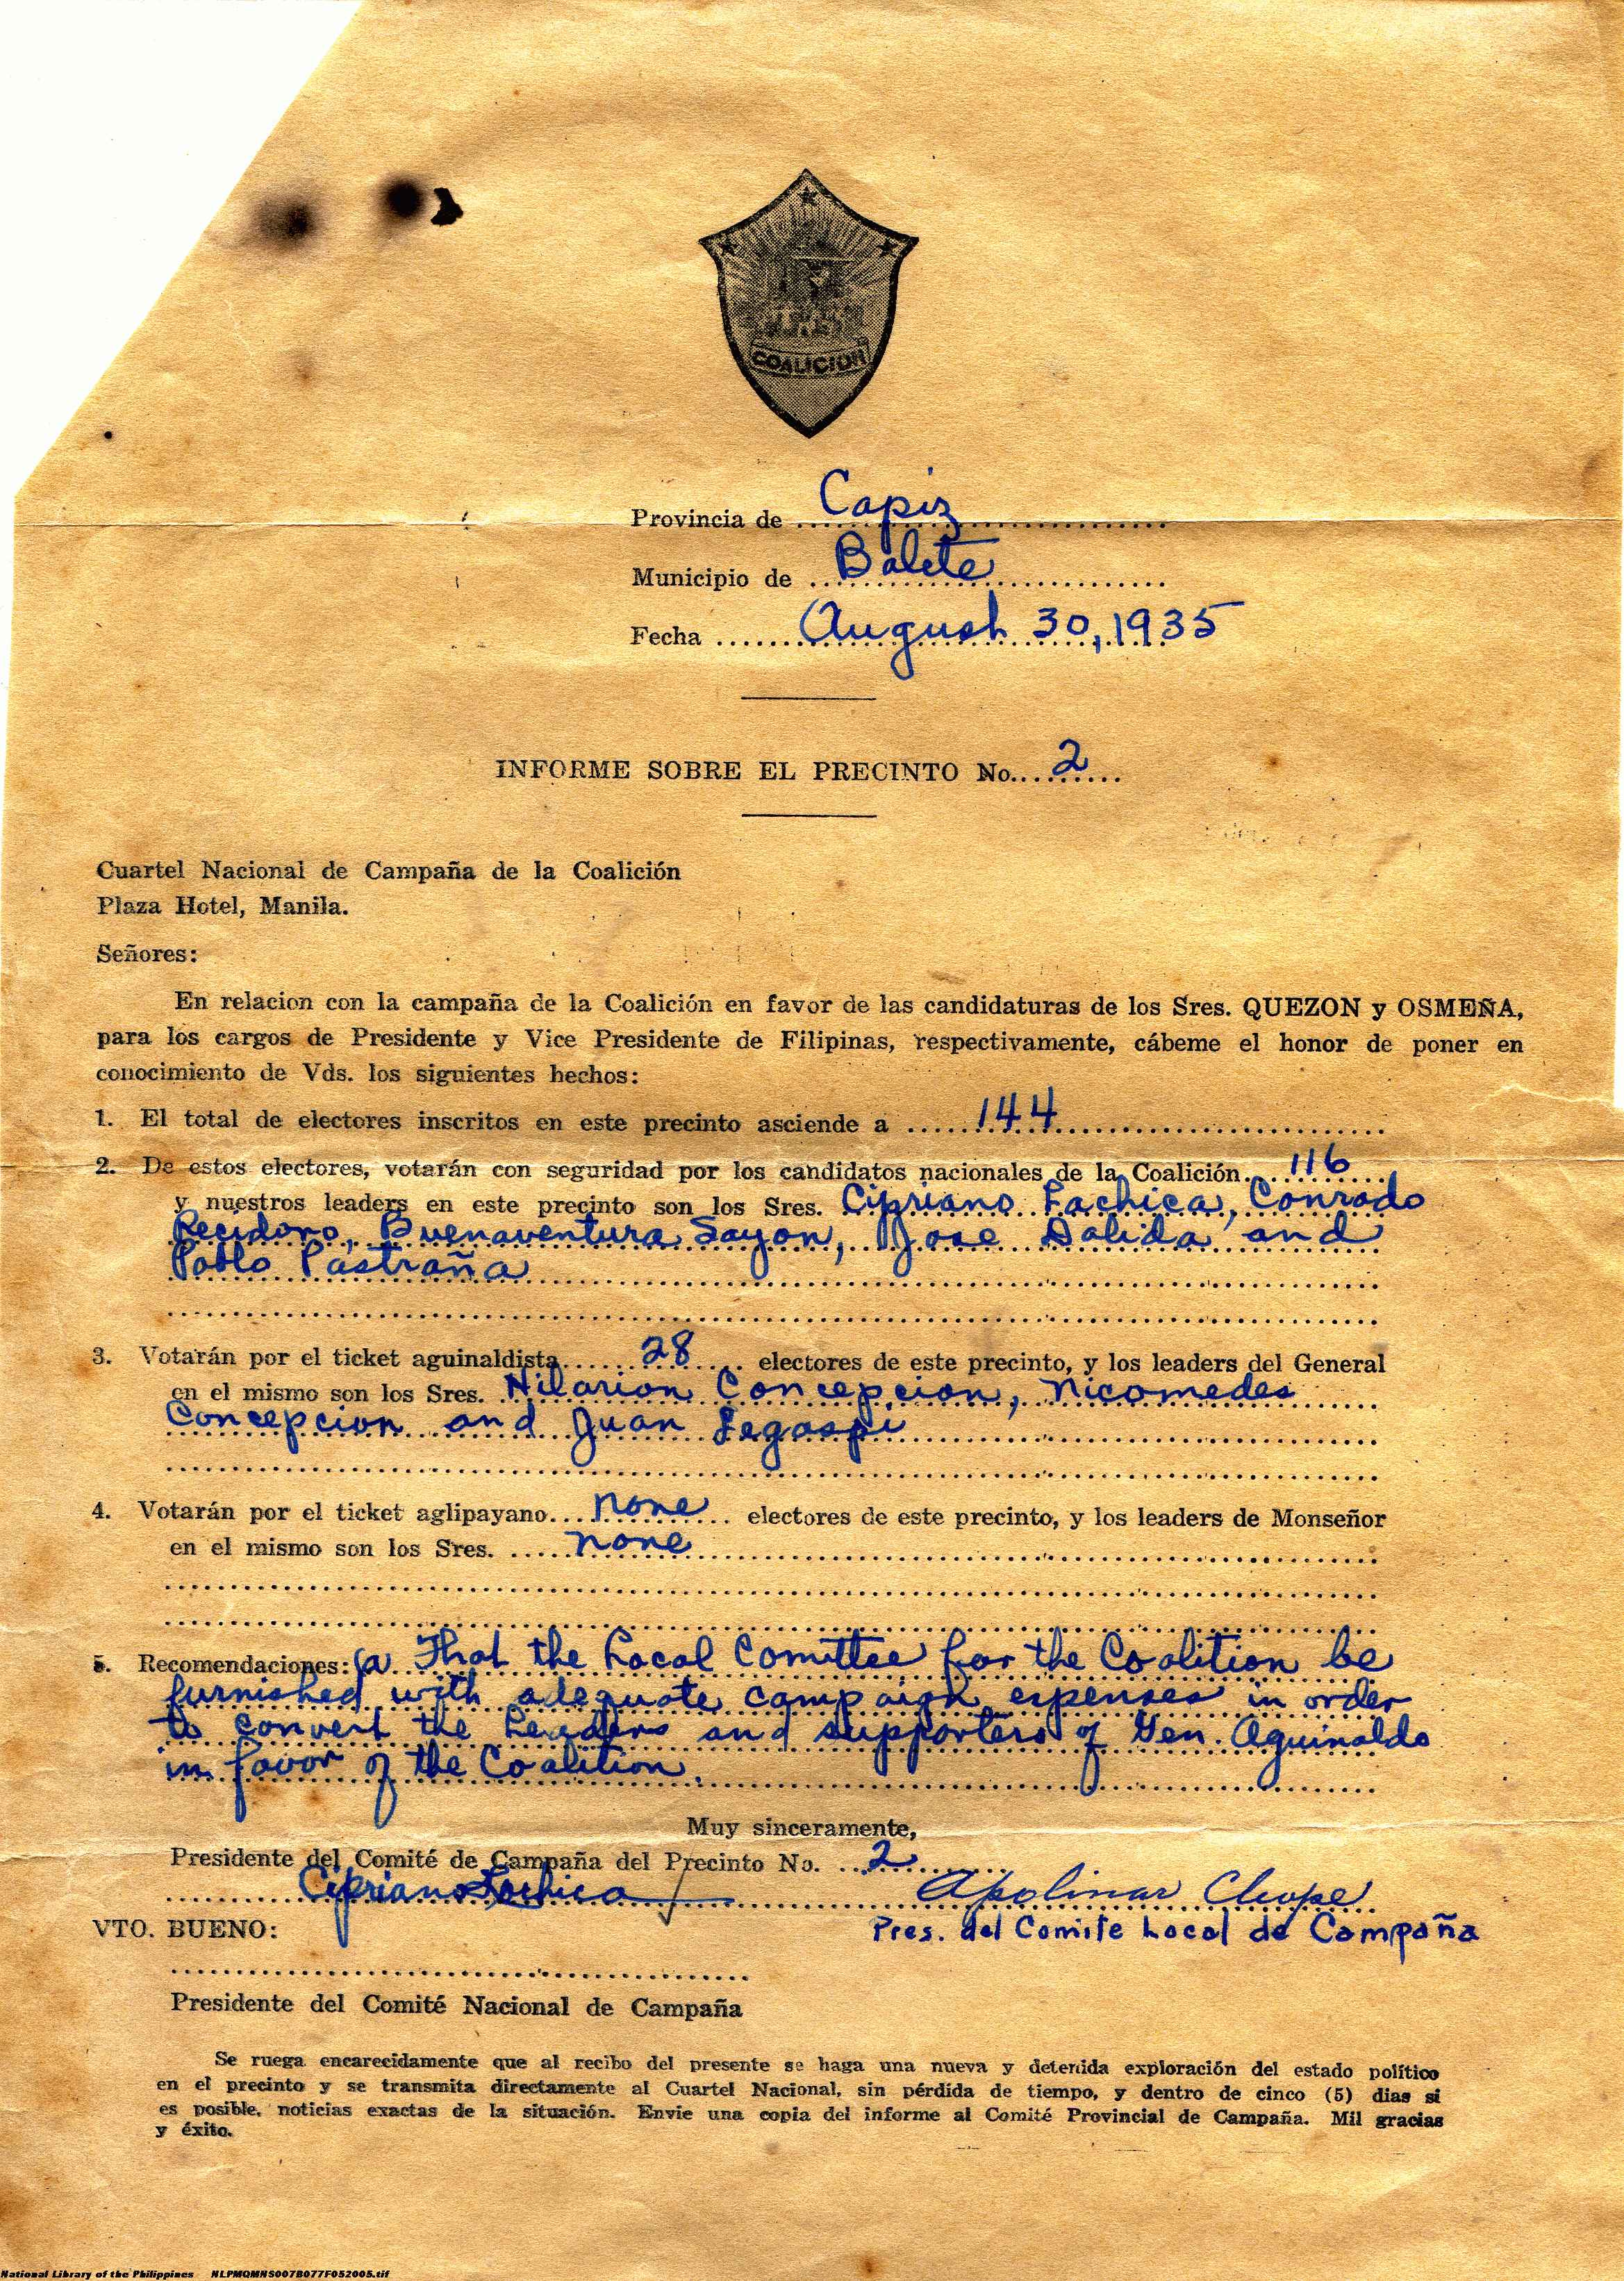 COALICION
Provincia de Capiz
Municipio de Balete
Fecha August 30, 1935
INFORME SOBRE EL PRECINTO No. 2
Cuartel Nacional de Campaña de la Coalición
Plaza Hotel, Manila.
Señores:
En relacion con la campaña de la Coalición en favor de las candidaturas de los Sres. QUEZON y OSMEÑA,
para los cargos de Presidente y Vice Presidente de Filipinas, respectivamente, cábeme el honor de poner en
conocimiento de Vds. los siguientes hechos:
1. El total de electores inscritos en este precinto asciende a 144
2. De estos electores, votarán con seguridad por los candidatos nacionales de la Coalición 116
y nuestros leaders en este precinto son los Sres. Cipriano Lachica, Conrado
Recidoro, Buenaventura Sayon, Jose Dalida and
Pablo Pastraña
3. Votarán por el ticket aguinaldista 28 electores de este precinto, y los leaders del General
en el mismo son los Sres. Hilarion Concepcion, Nicomedes
Concepcion and Juan Legaspi
4. Votarán por el ticket aglipayano none electores de este precinto, y los leaders de Monseñor
en el mismo son los Sres. none
5. Recomendaciones: (a That the Local Comittee for the Coalition be
furnished with adequate campaign expenses in order
to convert the Leaders and supporters of Gen. Aguinaldo
in favor of the Coalition.
Muy sinceramente,
Presidente del Comité de Campaña del Precinto No. 2
Cipriano Lachica Apolinar
VTO. BUENO: Pres. del Comite Local de Campaña
Presidente del Comité Nacional de Campaña
Se ruega encarecidamente que al recibo del presente se haga una nueva y detenida exploración del estado político
en el precinto y se transmita directamente al Cuartel Nacional, sin pérdida de tiempo, y dentro de cinco (5) dias si
es posible, noticias exactas de la situación. Envie una copia del informe al Comité Provincial de Campaña. Mil gracias
y éxito.
National Library of the Philippines NLPMQMNS007B077F052005.tif